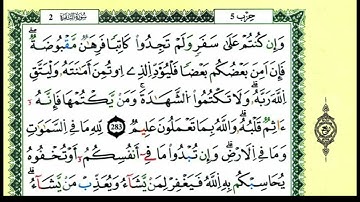 حزب 5
سورة البقرة
2
وَإِن كُنتُمْ عَلَىٰ سَفَرٍ وَلَمْ تَجِدُوا كَاتِبًا فَرِهَٰنٌ مَّقْبُوضَةٌ
فَإِنْ أَمِنَ بَعْضُكُم بَعْضًا فَلْيُؤَدِّ الَّذِي اؤْتُمِنَ أَمَٰنَتَهُ وَلْيَتَّقِ
اللَّهَ رَبَّهُ وَلَا تَكْتُمُوا الشَّهَٰدَةَ وَمَن يَكْتُمْهَا فَإِنَّهُ
ءَاثِمٌ قَلْبُهُ وَاللَّهُ بِمَا تَعْمَلُونَ عَلِيمٌ 283 لِّلَّهِ مَا فِي السَّمَٰوَٰتِ
وَمَا فِي الْأَرْضِ وَإِن تُبْدُوا مَا فِي أَنفُسِكُمْ أَوْ تُخْفُوهُ
يُحَاسِبْكُم بِهِ اللَّهُ فَيَغْفِرْ لِمَن يَشَاءُ وَيُعَذِّبْ مَن يَشَاءُ